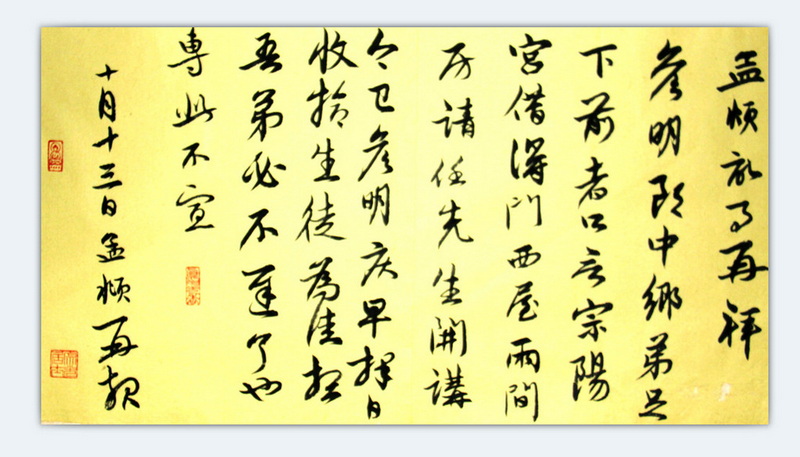 孟頫記事再拜
彥明郎中鄉弟足
下前者所言宗陽
宮借得門西屋兩間
房請任先生開講
今已彥明疾早擇日
收拾生徒為佳想
吾弟必不遲了也
專此不宣
十月十三日孟頫再